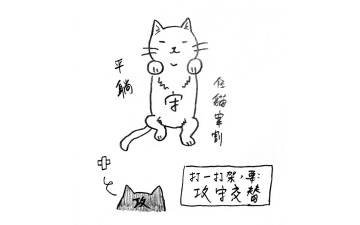 平躺
任貓宰割
守
攻
打一打架,要:
攻守交替